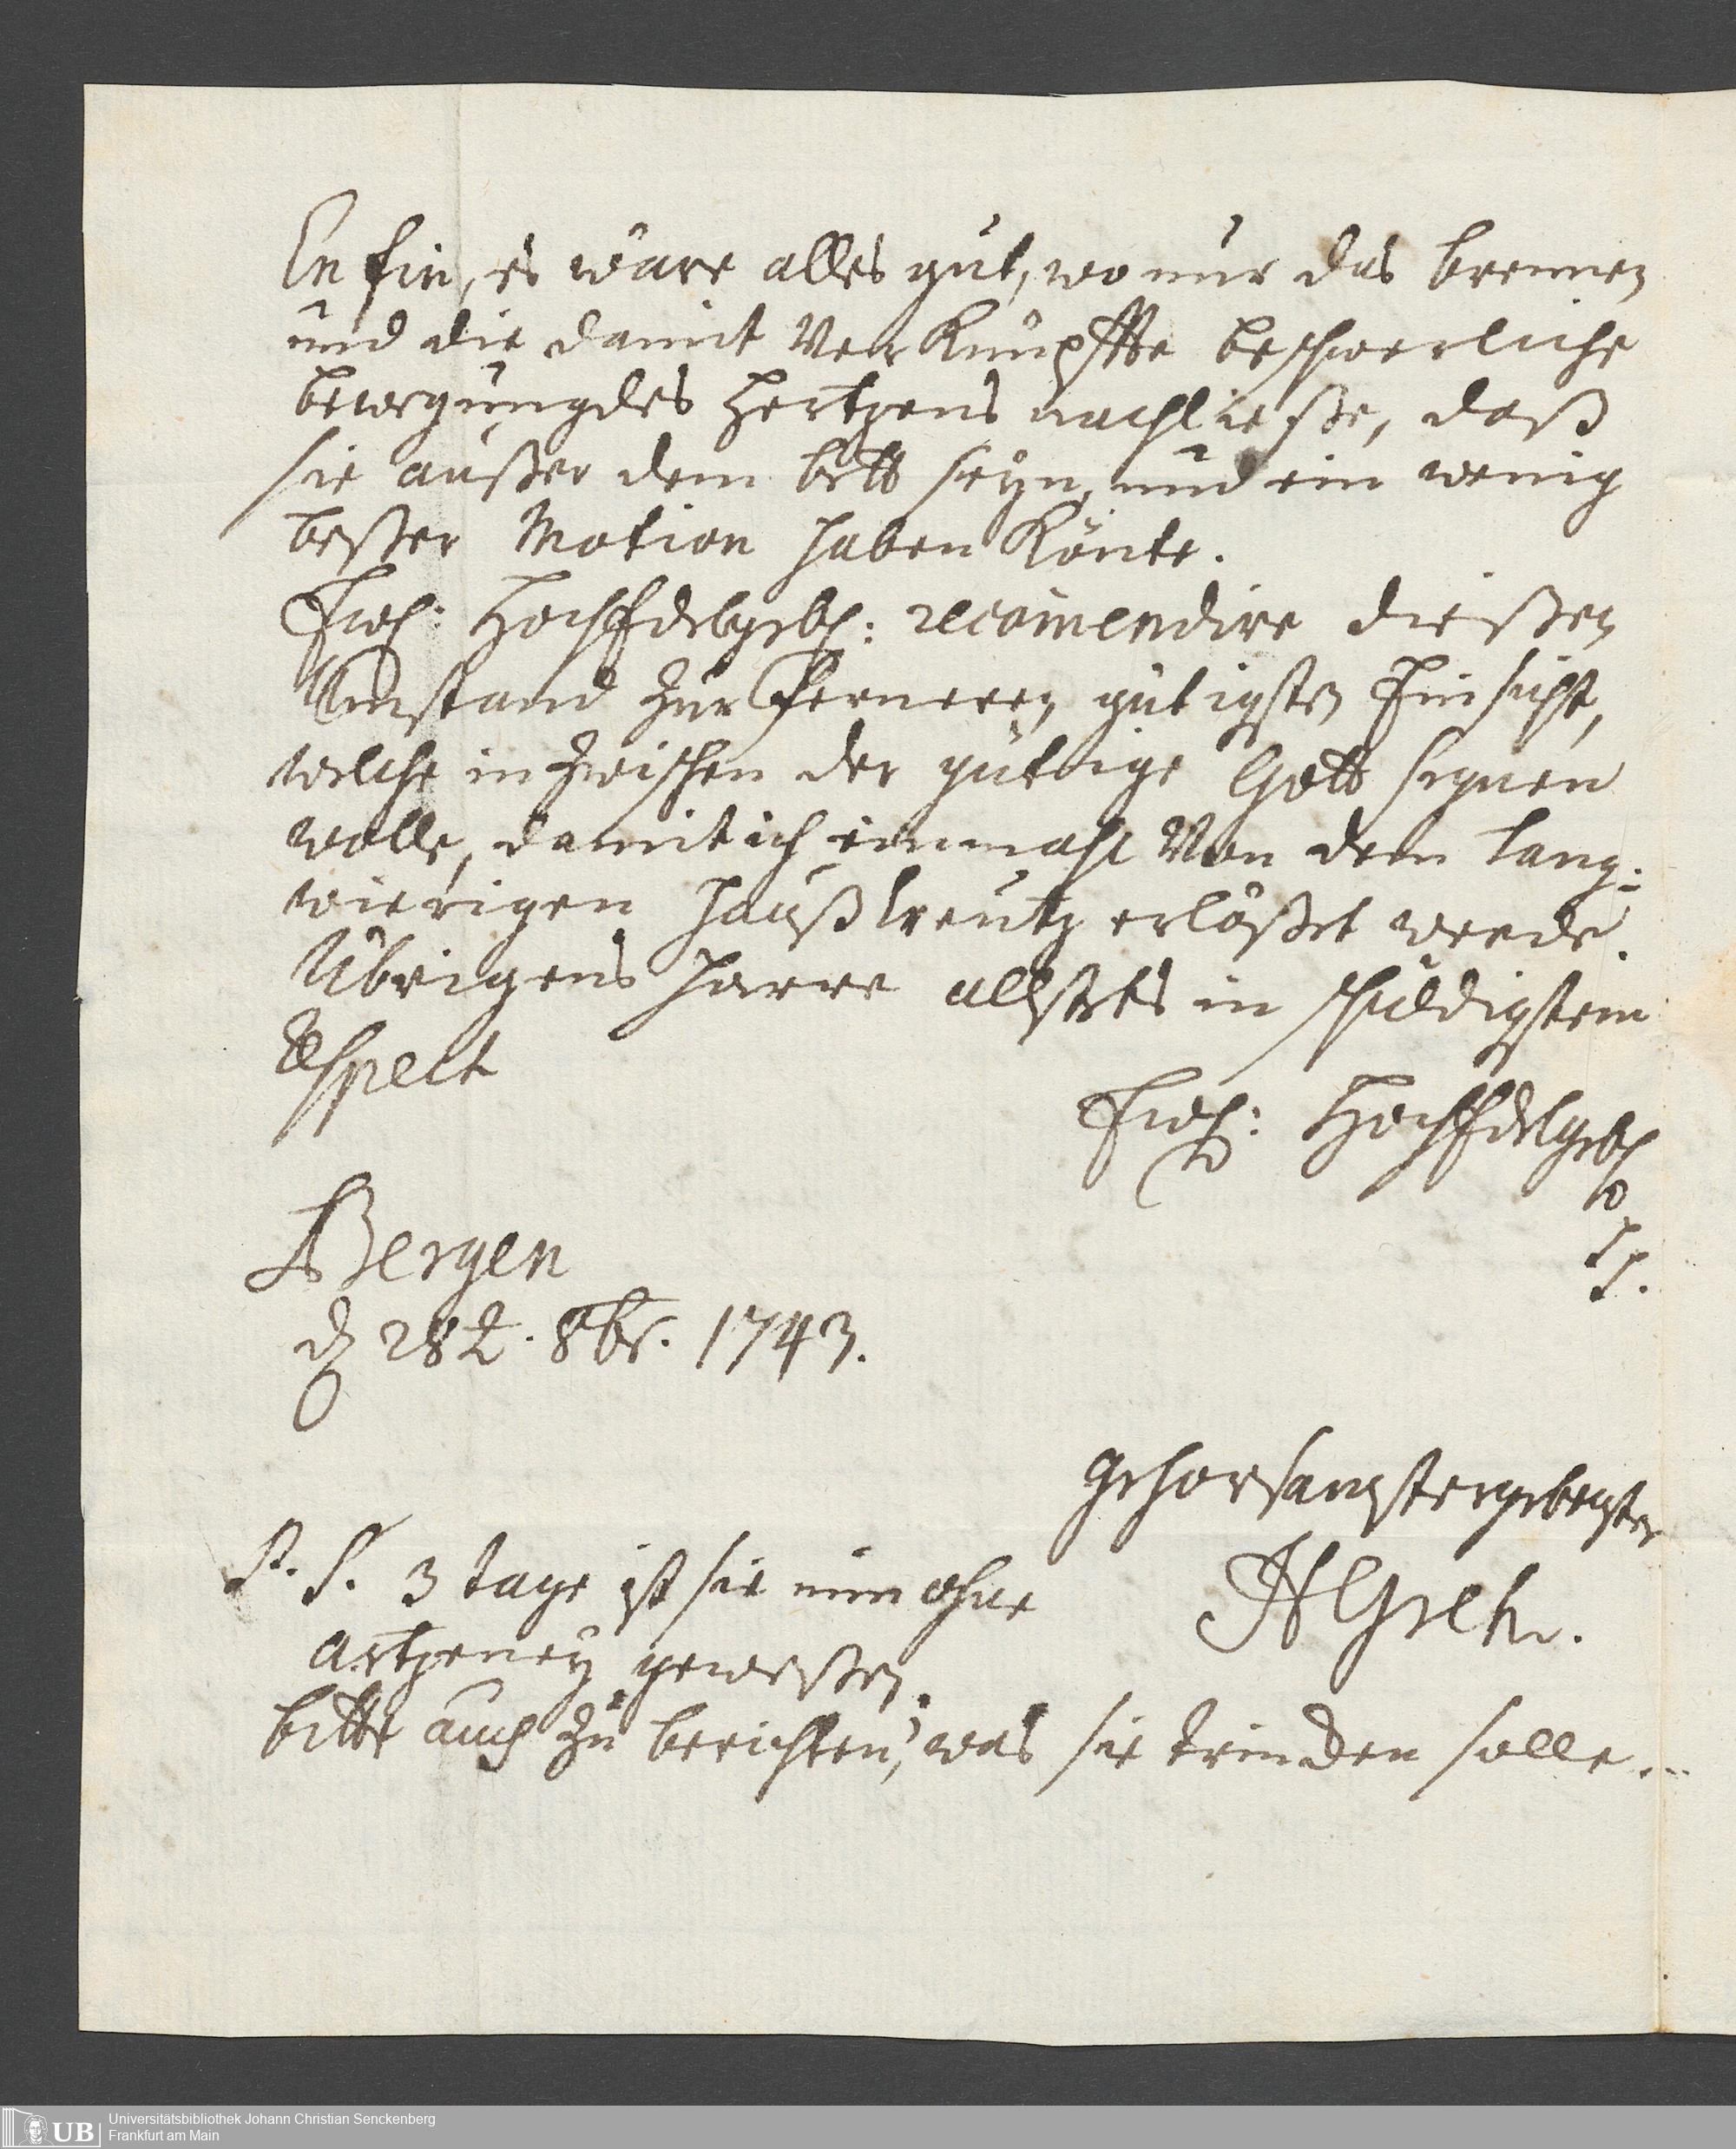 En fin, es wäre alles gut, wo nur das brennen
und die damit Verknüpffte beschwerliche
bewegung des Hertzens nachließe, daß
sie außer dem bett seyn, und ein wenig
beßer Motion haben Könte.
Ewl: HochEdelgebl: recom̅endire dießen
Umstand zur Ferneren gütigsten Einsicht,
welche inzwischen der güttige Gott segnen
wolle, damit ich einmahl Von dem lang-
wierigen Haußkreutz erlößet werde.
Übrigens harre allstets in schuldigstem
Respect
Ewl: HochEdelgebl
Bergen
d 28t. 8br. 1743.
gehorsamstergebenster
P. S. 3 tage ist sie nun ohne
artzeney geweßen.
bitte auch zu berichten, was sie trincken solle.
Universitätsbibliothek Johann Christian Senckenberg
Frankfurt am Main
UB